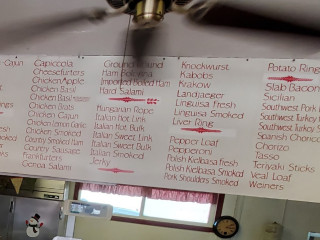 Cajun
Capicolla
Cheesefurters
Chicken Apple
Chicken Basil
Chicken Basil
Chicken Brats
Chicken Cajun
Chicken Lemon Garlic
Chicken Smoked
Country Smoked Ham
Country Sausage
Frankfurters
Genoa Salami
Ground Round
Ham Bologna
Imported Boiled Ham
Hard Salami
Hungarian Rope
Italian Hot Link
Italian Hot Bulk
Italian Sweet Link
Italian Sweet Bulk
Italian Smoked
Jerky
Knockwurst
Kabobs
Krakow
Landjaeger
Linguisa Fresh
Linguisa Smoked
Liver Ring
Pepper Loaf
Pepperoni
Polish Kielbasa Fresh
Polish Kielbasa Smoked
Pork Shoulders Smoked
Potato Ring
Slab Bacon
Sicilian
Southwest Pork
Southwest Turkey
Southwest Turkey
Spanish Chorizo
Chorizo
Tasso
Teriyaki Sticks
Veal Loaf
Weiners